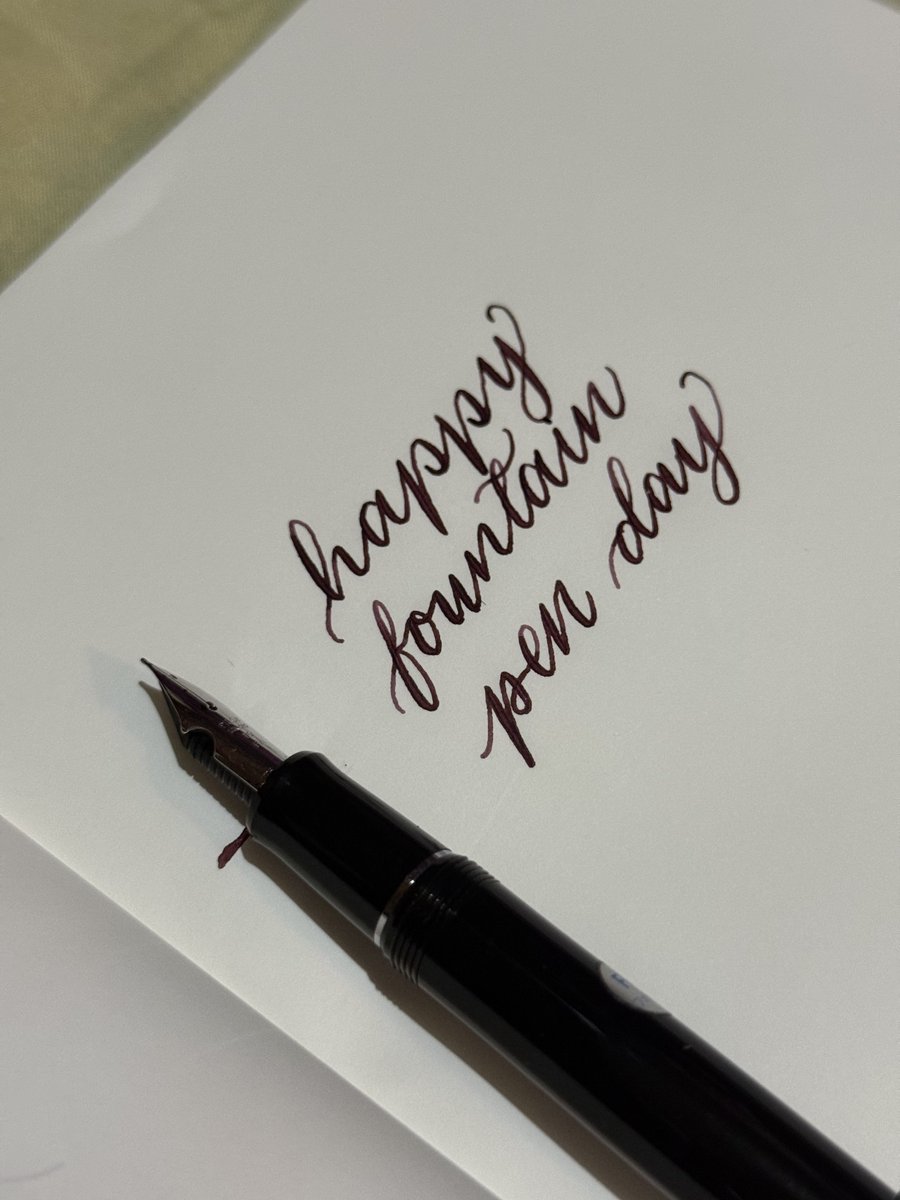 happy
fountain
pen day